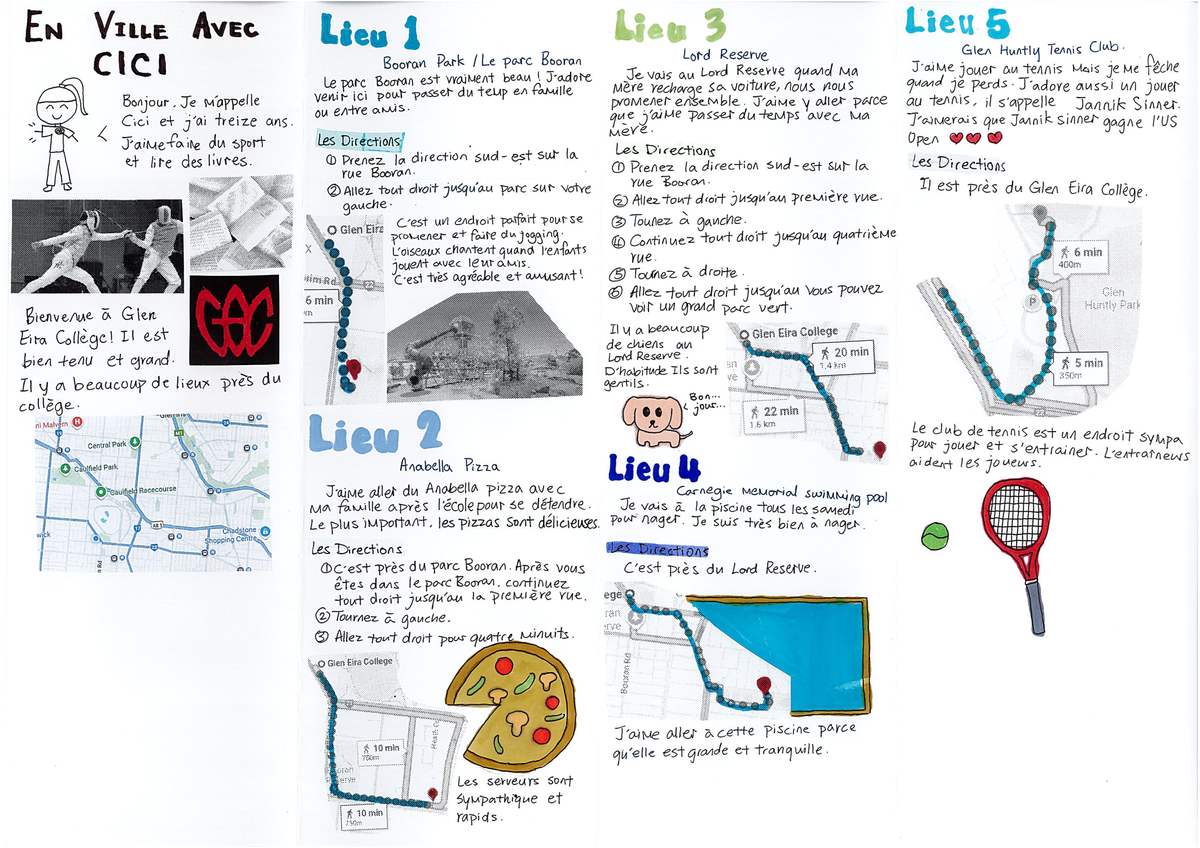 EN VILLE AVEC
CICI
Bonjour. Je m'appelle
Cici et j'ai treize ans.
J'aime faire du sport
et lire des livres.
GEC
Bienvenue à Glen
Eira Collège! Il est
bien tenu et grand.
Il y a beaucoup de lieux près du
collège.
ni Malvern
Central Park
Caulfield Park
Caulfield Racecourse
Chadstone
Shopping Centre
wick
Lieu 1
Booran Park / Le parc Booran
Le parc Booran est vraiment beau ! J'adore
venir ici pour passer du temp en famille
ou entre amis.
Les Directions
① Prenez la direction sud-est sur la
rue Booran.
② Allez tout droit jusqu'au parc sur votre
gauche.
Glen Eira
6 min
22
C'est un endroit parfait pour se
promener et faire du jogging.
L'oiseaux chantent quand l'enfants
jouent avec leur amis.
C'est très agréable et amusant!
Lieu 2
Anabella Pizza
J'aime aller du Anabella pizza avec
ma famille après l'école pour se détendre.
Le plus important, les pizzas sont délicieuses.
Les Directions
① C'est près du parc Booran. Après vous
êtes dans le parc Booran, continuez
tout droit jusqu'au la première rue.
② Tournez à gauche.
③ Allez tout droit pour quatre minuits.
Glen Eira College
10 min
750m
10 min
750m
Les serveurs sont
sympathique et
rapids.
Lieu 3
Lord Reserve
Je vais au Lord Reserve quand ma
mère recharge sa voiture, nous nous
promener ensemble. J'aime y aller parce
que j'aime passer du temps avec ma
mère.
Les Directions
① Prenez la direction sud-est sur la
rue Booran.
② Allez tout droit jusqu'au première rue.
③ Tounez à gauche.
④ Continuez tout droit jusqu'au quatrième
rue.
⑤ Tounez à droite.
⑥ Allez tout droit jusqu'au vous pouvez
voir un grand parc vert.
Il y a beaucoup
de chiens au
Lord Reserve.
D'habitude Ils sont
gentils.
Bon...
jour...
Glen Eira College
20 min
1.4 km
22 min
1.6 km
Lieu 4
Carnegie Memorial swimming pool
Je vais à la piscine tous les samedi
pour nager. Je suis très bien à nager.
Les Directions
C'est près du Lord Reserve.
Booran Rd
J'aime aller à cette piscine parce
qu'elle est grande et tranquille.
Lieu 5
Glen Huntly Tennis Club.
J'aime jouer au tennis mais je me fêche
quand je perds. J'adore aussi un jouer
au tennis, il s'appelle Jannik Sinner.
J'aimerais que Jannik sinner gagne l'US
Open
Les Directions
Il est près du Glen Eira Collège.
6 min
400m
P
Glen
Huntly Park
5 min
350m
22
Le club de tennis est un endroit sympa
pour jouer et s'entrainer. L'entraîneurs
aident les joueurs.